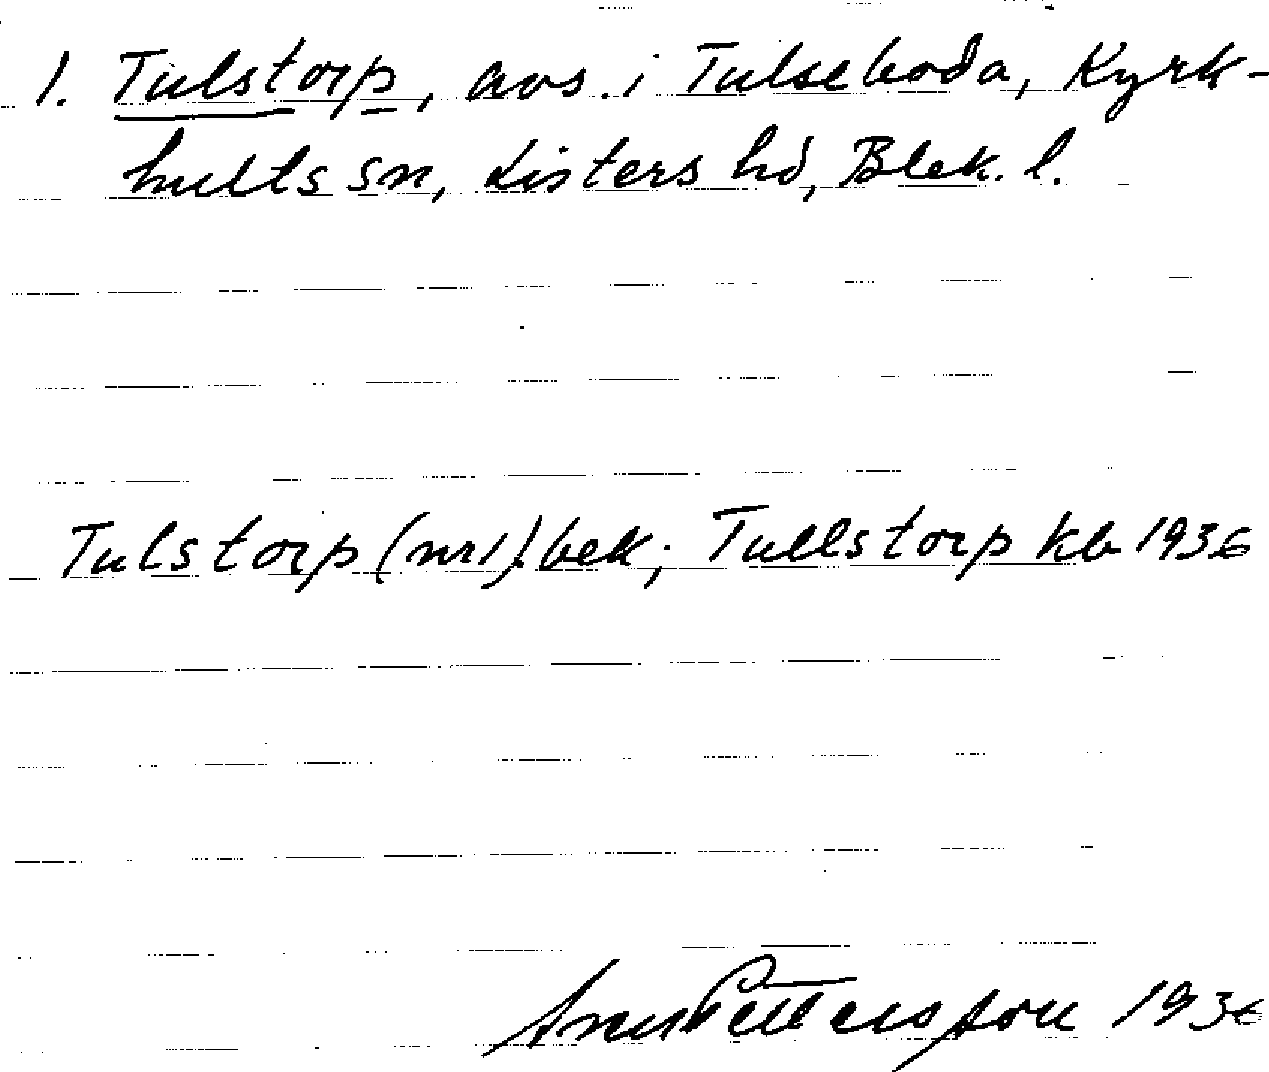 1. Tulstorp, avs. i Tulseboda, Kyrk-
hults sn, Listers hd, Blek. l.
Tulstorp (nr 1). bek; Tullstorp kb 1936
Pettersson 1936